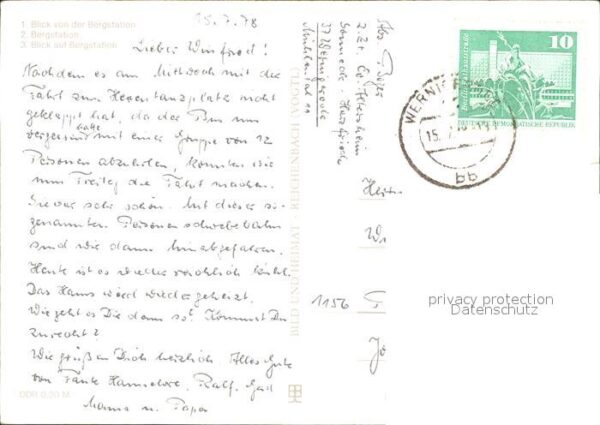 15.7.78
1 Blick von der Bergstation
2. Bergstation
3. Blick auf Bergstation
Lieber Winfried!
Nachdem es am Mittwoch mit die
Fahrt zum Hexentanzplatz nicht
geklappt hat, da der Bus uns
vergessen hatte mit einer Gruppe von 12
Personen abzuholen, konnten wir
nun Freitag die Fahrt machen.
Sie war sehr schön. Mit dieser so-
genannten Personenschwebebahn
sind wir dann hinabgefahren.
Heute ist es wieder
Das Haus wird wieder geheizt.
Wie geht es Dir denn so? Kommst Du
zurecht?
Wir grüßen Dich herzlich Alles Gute
von Tante Hannelore, Ralf,
Mama u. Papa
DDR 0,20 M
BILD UND HEIMAT REICHENBACH (VOGTL)
z.Zt.
37 Wernigerode
11
10
DEUTSCHE DEMOKRATISCHE REPUBLIK
WERNIGERODE
15.7.78
bq
1156
privacy protection
Datenschutz